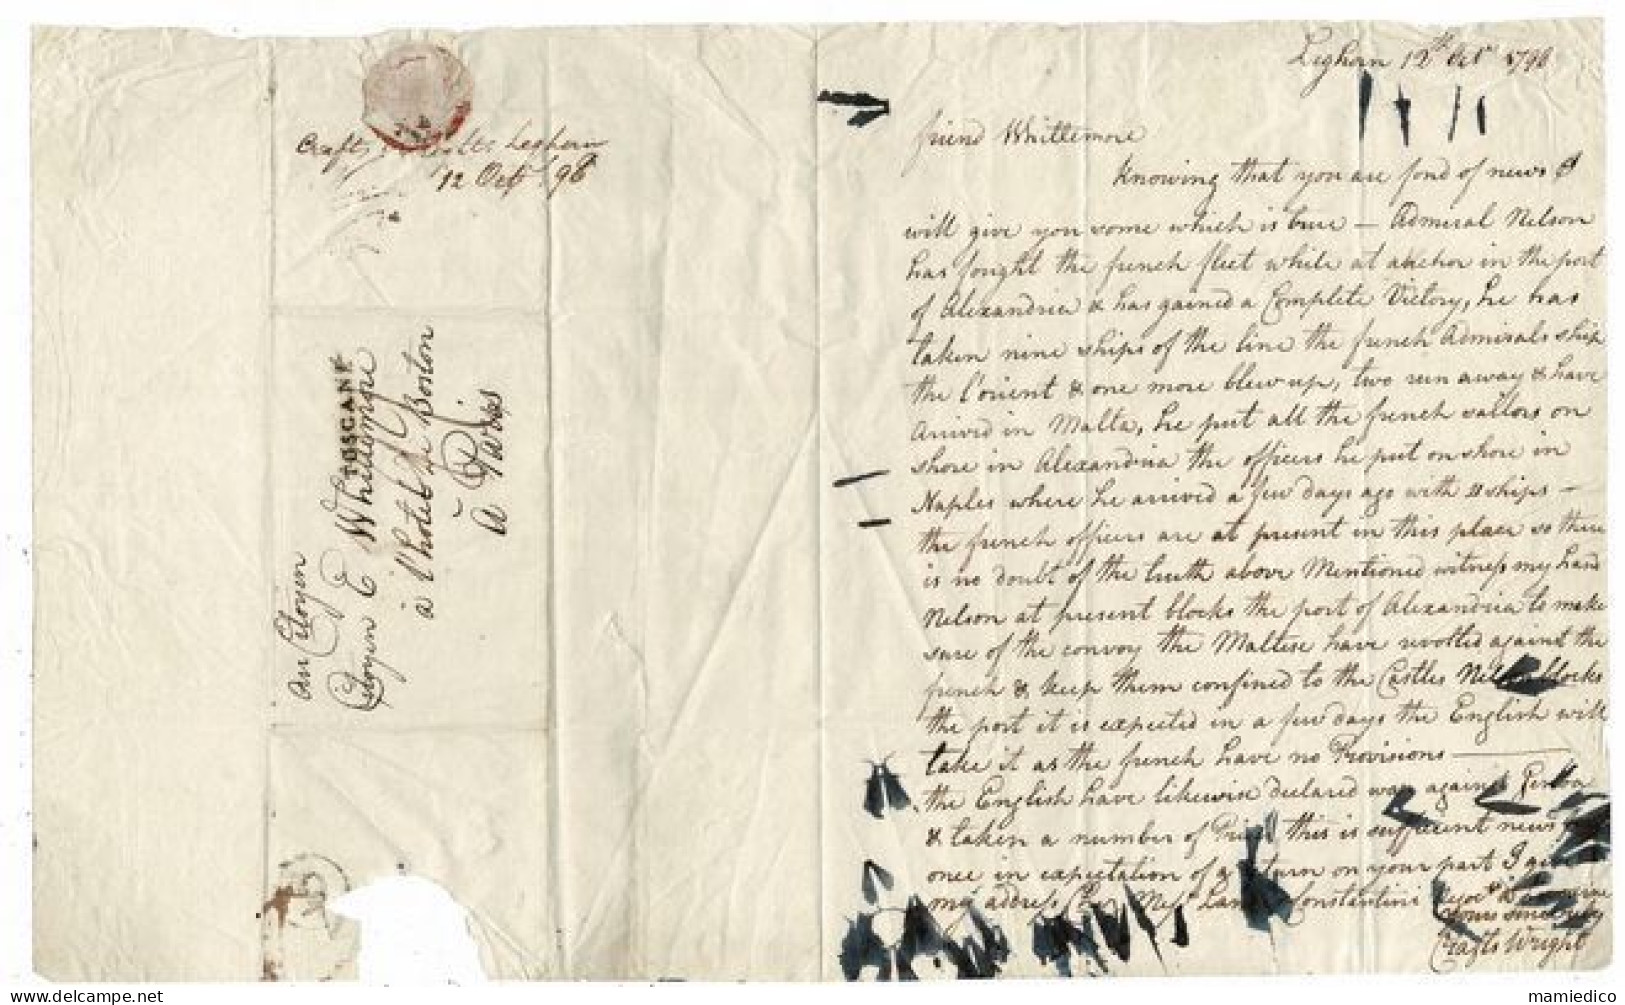 Leghorn 12th Octr 1798
friend Whittemore
Knowing that you are fond of news I
will give you some which is true — Admiral Nelson
has fought the french fleet while at anchor in the port
of Alexandria & has gained a Complete Victory, he has
taken nine ships of the line the french Admirals ship
the l'orient & one more blew up, two run away & have
arrived in Malta, he put all the french sailors on
shore in Alexandria the officers he put on shore in
Naples where he arrived a few days ago with ships —
the french officers are at present in this place so there
is no doubt of the truth above Mentioned witness my hand
Nelson at present blocks the port of Alexandria to make
sure of the convoy the Maltese have revolted against the
french & keep them confined to the Castles Nelson blocks
the port it is expected in a few days the English will
take it as the french have no Provisions —
the English have likewise declared war against Genoa
& taken a number of this is sufficient news
once in expectation of a return on your part I
my address Messrs Constantini
Yours sincerely
Crafts Wright
Crafts Leghorn
12 Octr 98
TOSCANE
Au Citoyen
Citoyen E Whittemore
à l'hotel de Boston
à Paris
mamiedico